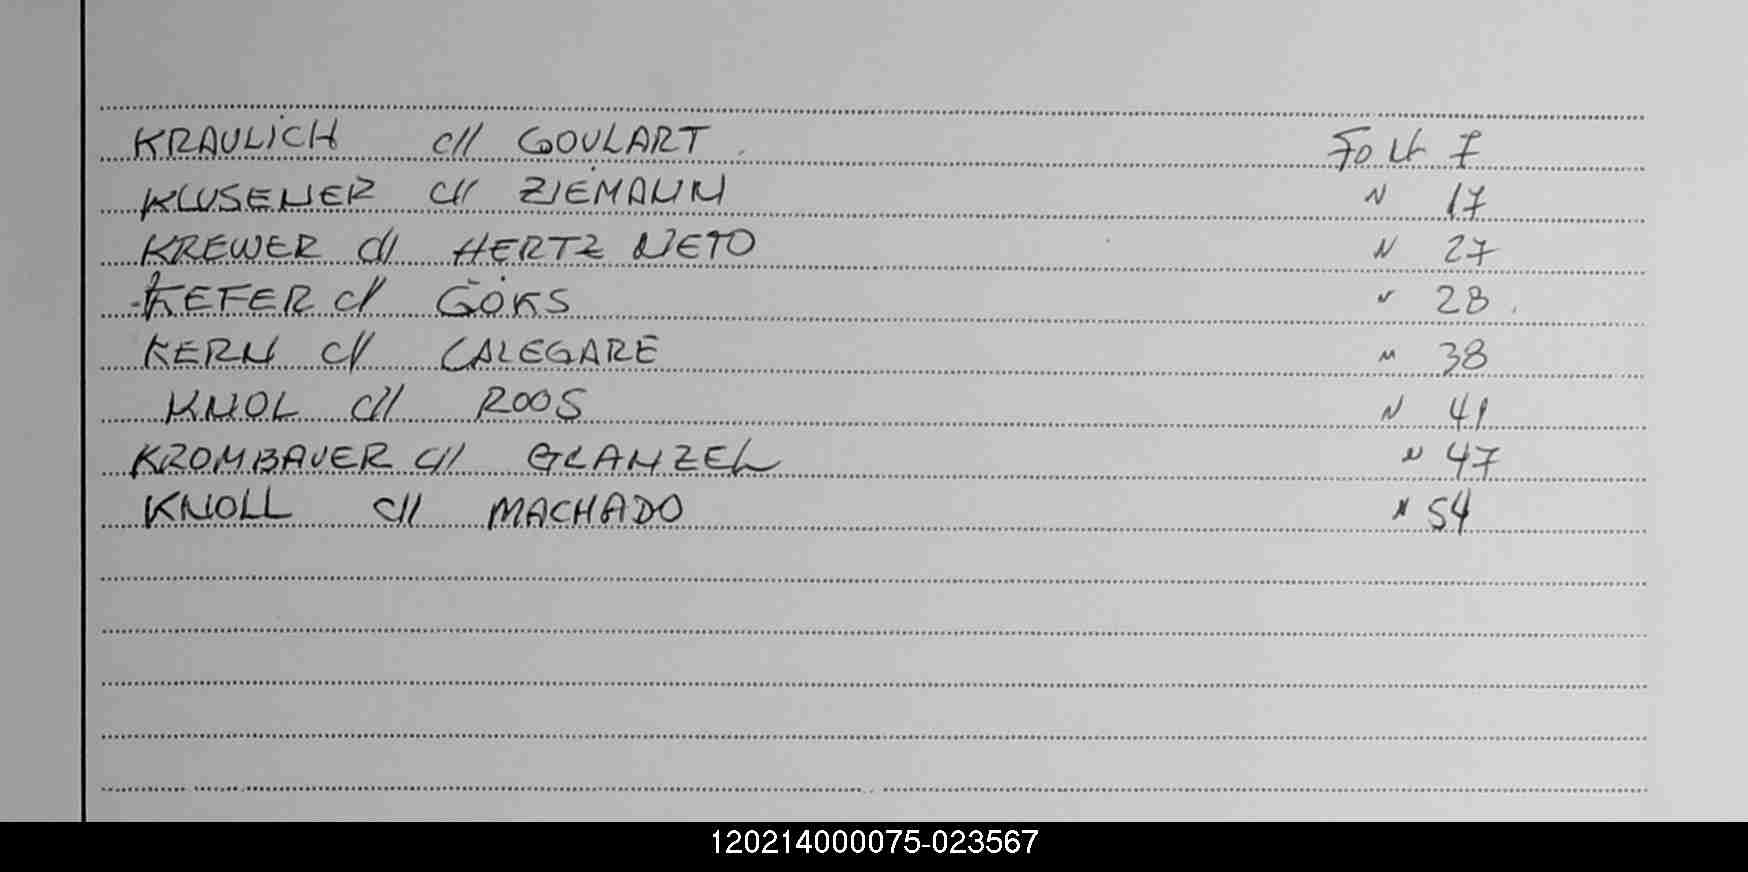 KRAULICH c// GOULART Folh 7
KLUSENER c// ZIEMANN " 17
KREWER c// HERTZ NETO " 27
KEFER c// GÖKS " 28
KERN c// CALEGARE " 38
KNOL c// ROOS " 41
KROMBAUER c// GLANZEL " 47
KNOLL c// MACHADO " 54
120214000075-023567